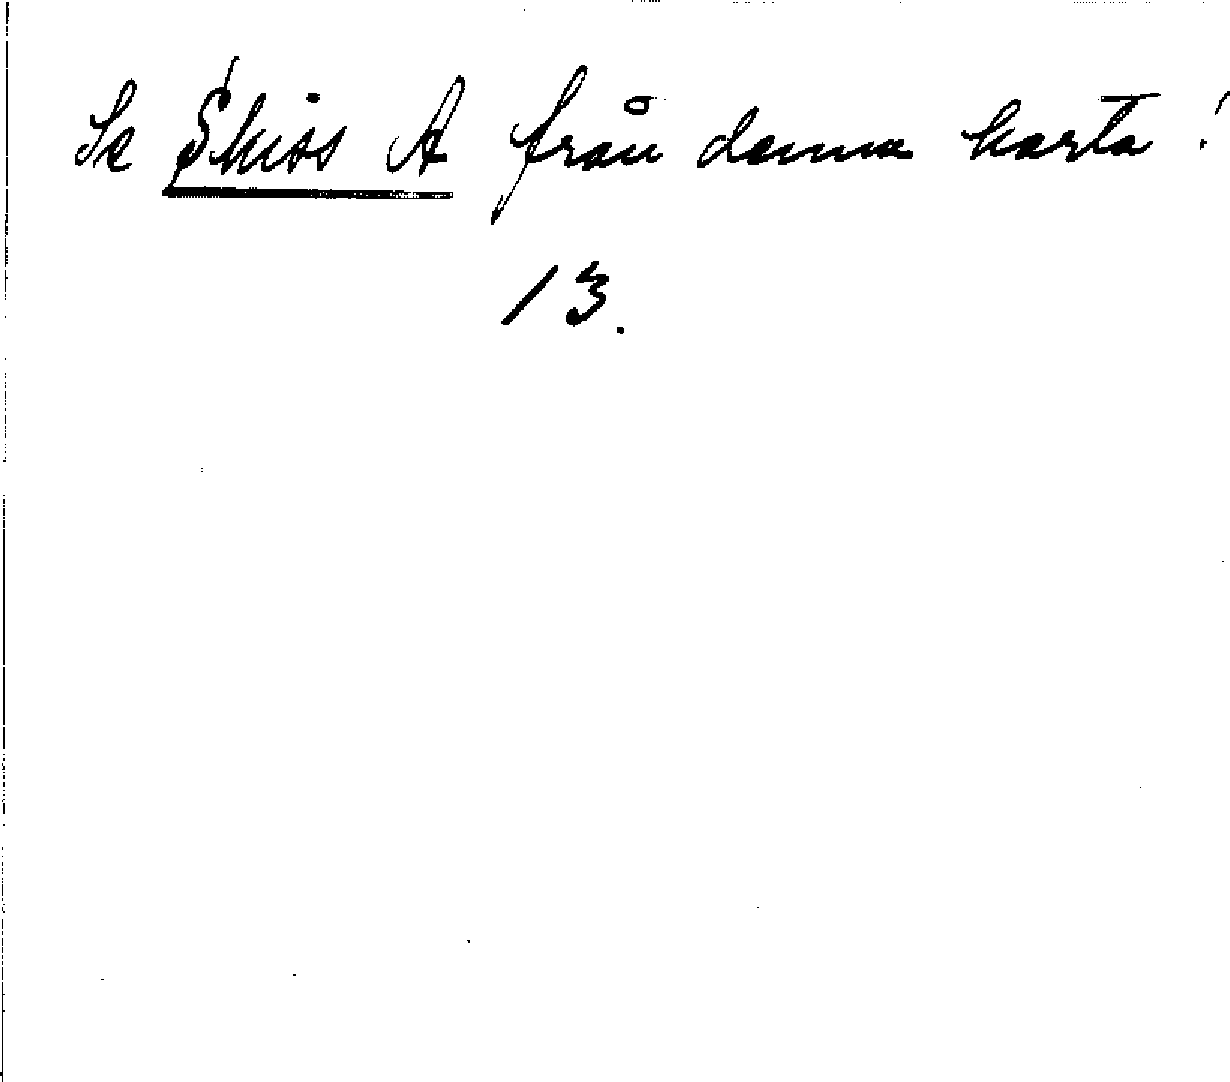 Se Skiss A från denna karta!
13.